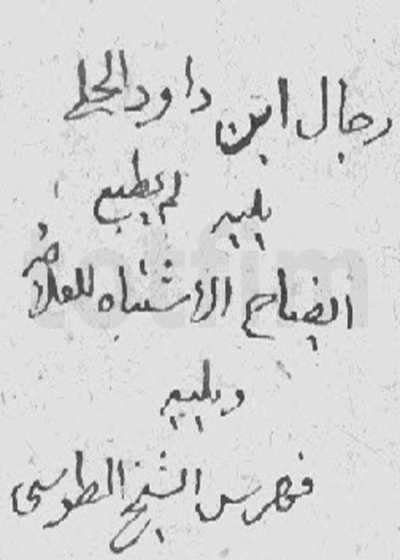 رجال ابن داود الحلي
يليه لم يطبع
ايضاح الاشتباه للعلامة
ويليه
فهرس الشيخ الطوسي